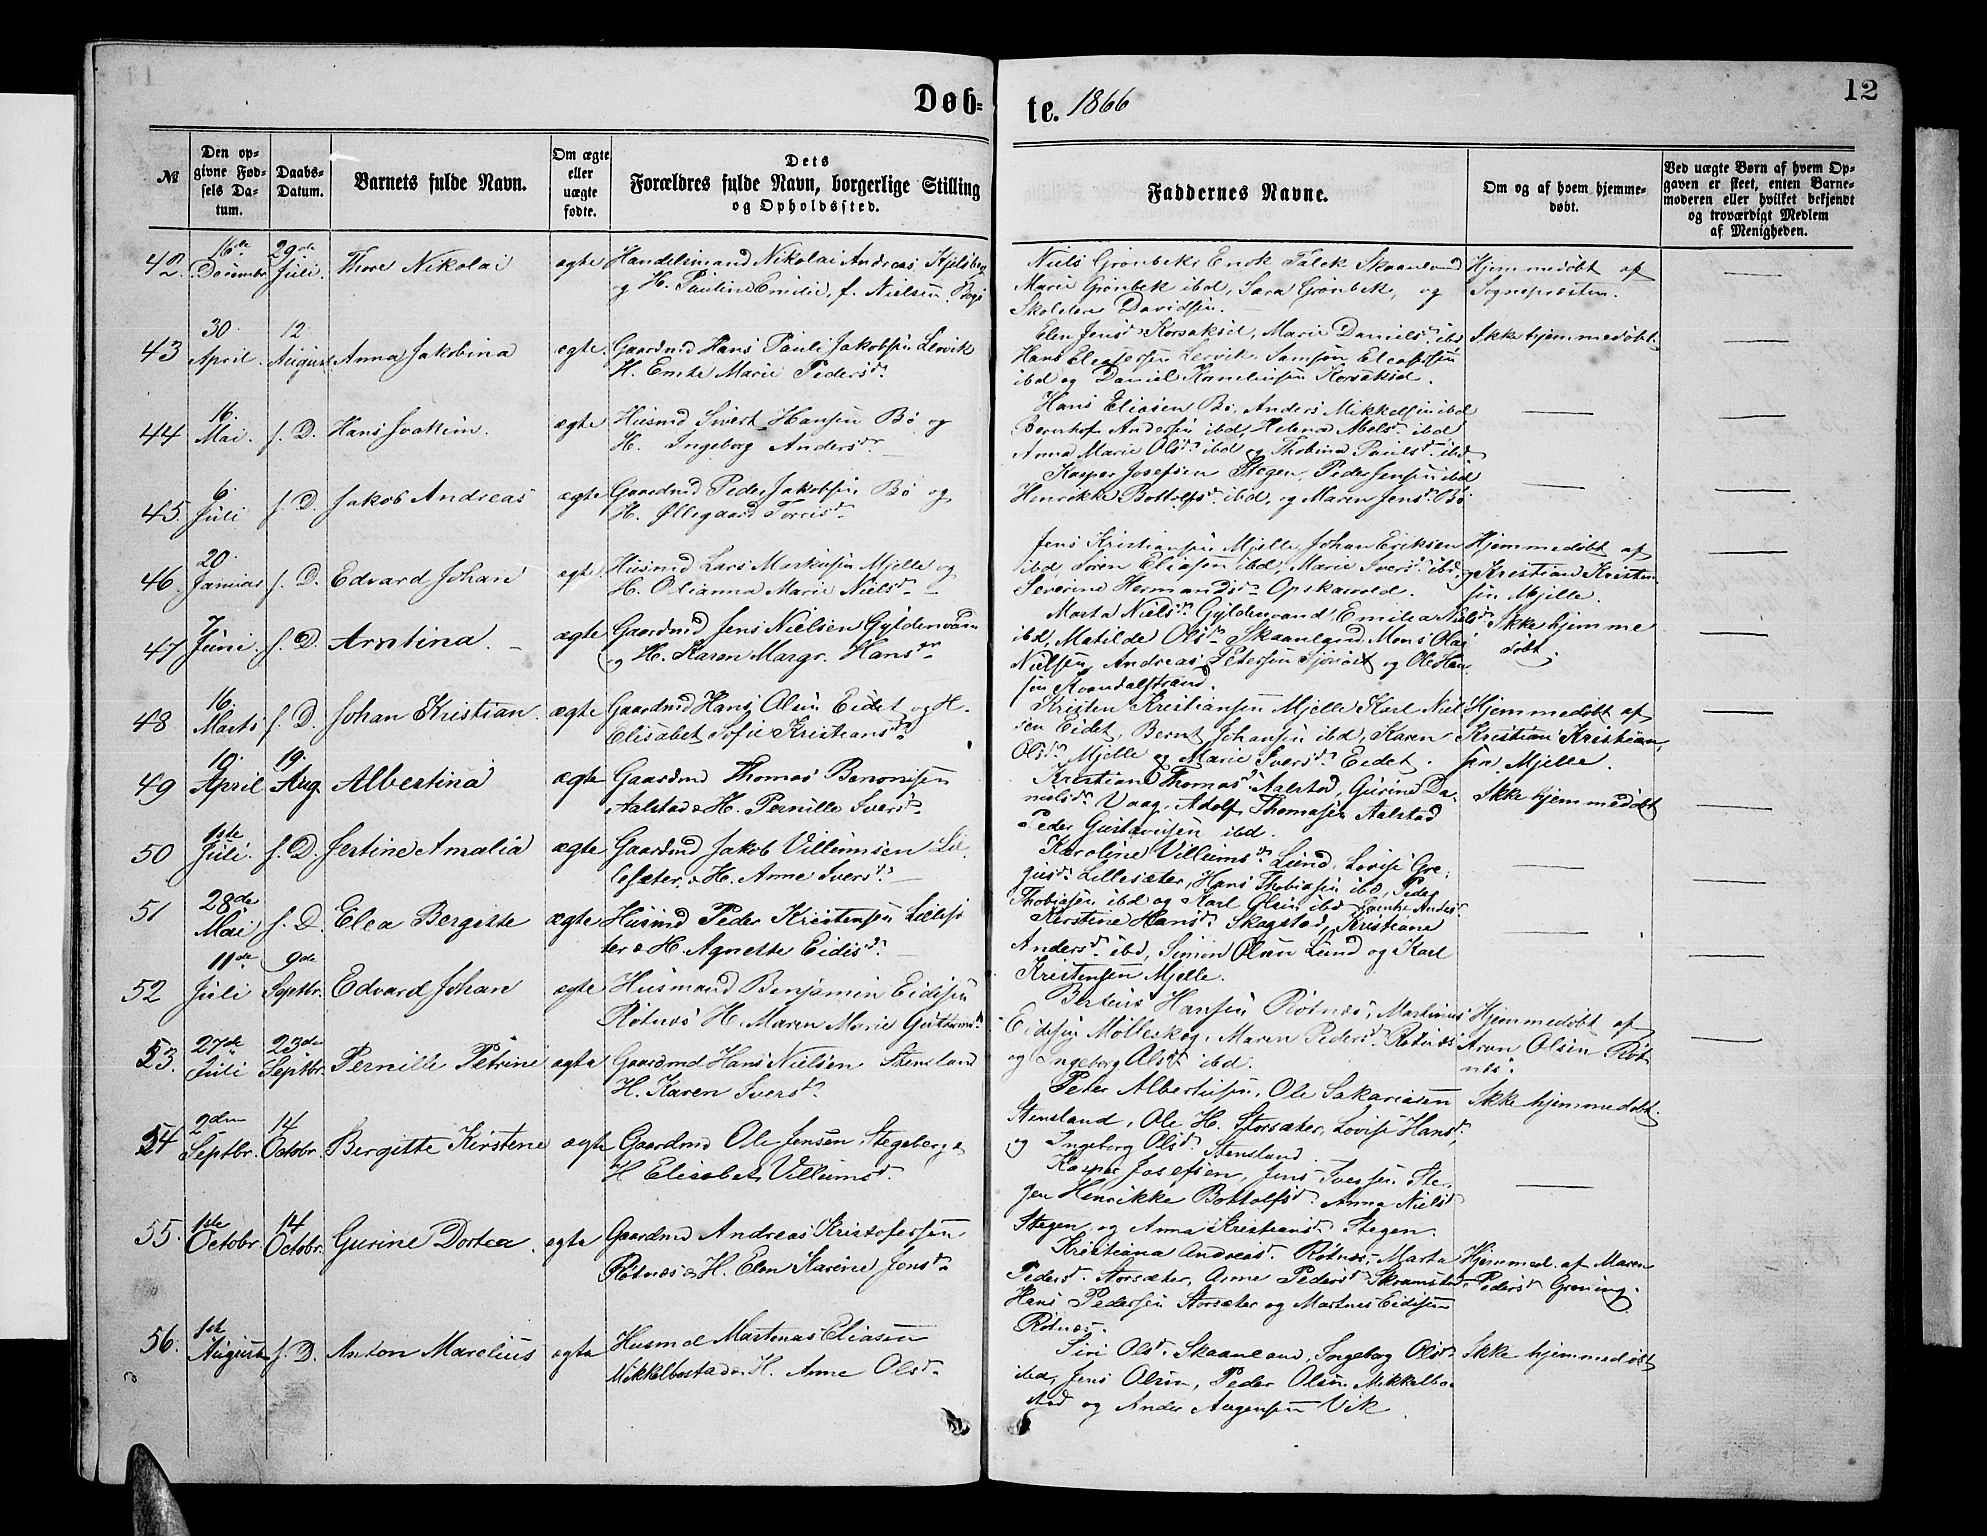 Døb-
te. 1866
12
№
Den op-
givne Fød-
sels Da-
tum.
Daabs-
Datum.
Barnets fulde Navn.
Om ægte
eller
uægte
fødte.
Dets
Forældres fulde Navn, borgerlige Stilling
og Opholdssted.
Faddernes Navne.
Om og af hvem hjemme-
døbt.
Ved uægte Børn af hvem Op-
gaven er skeet, enten Barne-
moderen eller hvilket bekjendt
og troværdigt Medlem
af Menigheden.
42. 16de Decembr. 29de Juli. Thore Nikolai ægte
Handelsmand Nikolai Andreas Kjelsberg
og H. Pauline Emilie, f. Nielsen Bogø
Niels Grønbek, Enok Falck Skaanland
Marie Grønbek ibd, Sara Grønbek, og
Skolelærer Davidsen.
Hjemmedøbt af
Sognepræsten.
43 30 April. 12. August. Anna Jakobina ægte.
Gaardmd Hans Pauli Jakobsen Lervik
H. Marie Pedersd.
Elen Jensd. Korsaksel, Marie Danielsd. ibd
Hans Eleasersen Lervik, Samson Eleasersen
ibd og Daniel Korsaksel.
Ikke hjemmedøbt.
44 16. Mai. s. D. Hans Joakim. ægte
Husmd Sivert Hansen Bø og
H. Ingeborg Andersd.
Hans Eliasen Bø, Anders Mikkelsen ibd
Berenhof Andersen ibd, Helena Abelsd. ibd
Anna Marie Olsd. ibd og Thobina Paulsd. ibd.
45. 6. Juli s. D. Jakob Andreas ægte
Gaardmd Peder Jakobsen Bø og
H. Øllegaard Torrisd.
Kasper Josefsen Stegen, Peder Jensen ibd
Henrikke Bottolfsd. ibd, og Maren Jensd. Bø
46. 20. Januar s. D. Edvard Johan ægte
Husmd Lars Markusen Mjelle og
H. Olianna Marie Nielsd.
Jens Kristiansen Mjelle, Johan Eriksen
ibd, Søren Eliasen ibd, Marie Iversd. ibd, og
Severine Hermandsd. Opskarvold.
Hjemmedøbt af
Kristian Kristen
sen Mjelle.
47 7 Juni. s. D. Arntina. ægte
Gaardmd Jens Nielsen Gyldenvand
og H. Karen Margr. Hansdr.
Marta Nielsd. Gyldenvand, Emilie Nielsd.
ibd, Matilde Olsd. Skaanland, Mons Olai
Nielsen, Andreas Petersen og Ole Han
sen Kvandalstrand.
Ikke hjemme
døbt.
48 16. Marts s. D. Johan Kristian. ægte
Gaardmd Hans Olsen Eidet og H.
Elisabet Sofie Kristiansd.
Kristen Kristiansen Mjelle, Karl Niel
sen Eidet, Bernt Johansen ibd, Karen
Olsd. Mjelle og Marie Iversd. Eidet.
Hjemmedøbt af
Kristian Kristian
sen Mjelle.
49 10 April 19. Aug. Albertina ægte
Gaardmd Thomas Benonisen
Aalstad & H. Pernille Iversd.
Kristiane Thomasd. Aalstad, Gurine Da
nielsd. Vaag, Adolf Thomasen Aalstad
Peder Gustavisen ibd.
Ikke hjemmedøbt
50 1ste Juli. s. D. Jertine Amalia ægte
Gaardmd Jakob Villumsen Lil
lesæter, & H. Anne Iversd.
Karoline Villumsd. Lund, Lovise Gre
gusd. Lillesæter, Hans Thobiasen ibd, Peder
Thobiasen ibd og Karl Olsen ibd
51 28de Mai s. D. Elea Bergitte ægte
Husmd Peder Kristensen Lillesæ
ter & H. Agnette Eidisd.
Kirstine Hansd. Skagstad, Kristiane
Andersd. ibd, Simon Olsen Lund og Karl
Kristensen Mjelle.
52 11de Juli 9de Septbr. Edvard Johan ægte
Husmand Benjamin Eidisen
Røtnæs H. Maren Marie Guttormsd.
Berteus Hansen Røtnæs, Martinus
Eidisen Molleskog, Maren Pedersd. Røtnæs
og Ingeborg Olsd. ibd.
Hjemmedøbt af
Aron Olsen Røt
næs.
53. 27de Juli 23de Septbr. Pernille Petrine ægte
Gaardmd Hans Nielsen Stensland
H. Karen Iversd.
Peter Albertusen, Ole Sakariasen
Stensland, Ole H. Storsæter, Lovise Hansd.
og Ingeborg Olsd. Stensland.
Ikke hjemmedøbt.
54 2den Septbr. 14 Octobr. Bergitte Kirstene ægte
Gaardmd Ole Jensen Stegeberg &
H. Elisabet Villumsd.
Kasper Josefsen, Jens Iversen Ste
gen Henrikke Bottolfsd. Anna Nielsd.
Stegen, og Anna Kristiansd. Stegen.
55. 1ste Octobr 14 Octobr. Gurine Dortea. ægte
Gaardmd Andreas Kristofersen
Røtnæs & H. Elen Karine Jensd.
Kristiana Andreasd. Røtnæs, Marta
Pedersd. Storsæter, Anne Pedersd. Skramstad
Hans Pedersen Storsæter og Martines Eidisen
Røtnæs.
Hjemmed. af Maren
Pedersd. Grøning.
56. 1ste August s. D. Anton Marelius ægte
Husmd Martenas Eliasen
Mikkelbostad & H. Anne Olsd.
Siri Olsd. Skaanland, Ingeborg Olsd.
ibd, Jens Olsen, Peder Olsen Mikkelbo
stad og Ander Aagensen Vik.
Ikke hjemmedøbt